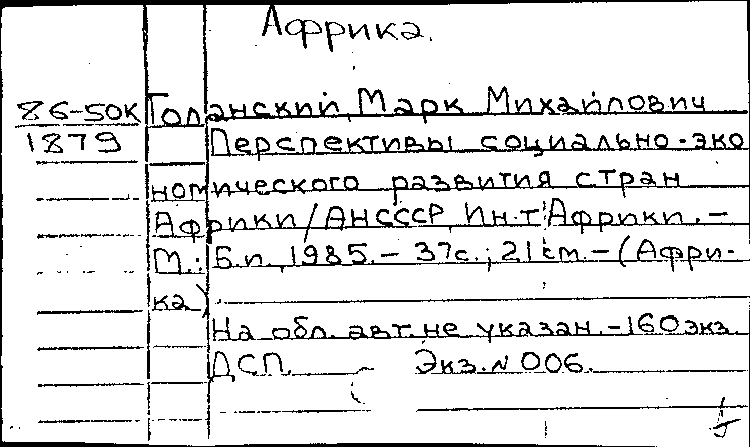 Африка.
86-50К Голанский, Марк Михайлович
1879 Перспективы социально-эко
номического развития стран
Африки/АНСССР, Ин-т Африки. –
М.: Б.и., 1985. – 37с.; 21см. – (Афри-
ка).
На обл. авт. не указан. – 160экз.
ДСП. Экз. N 006.